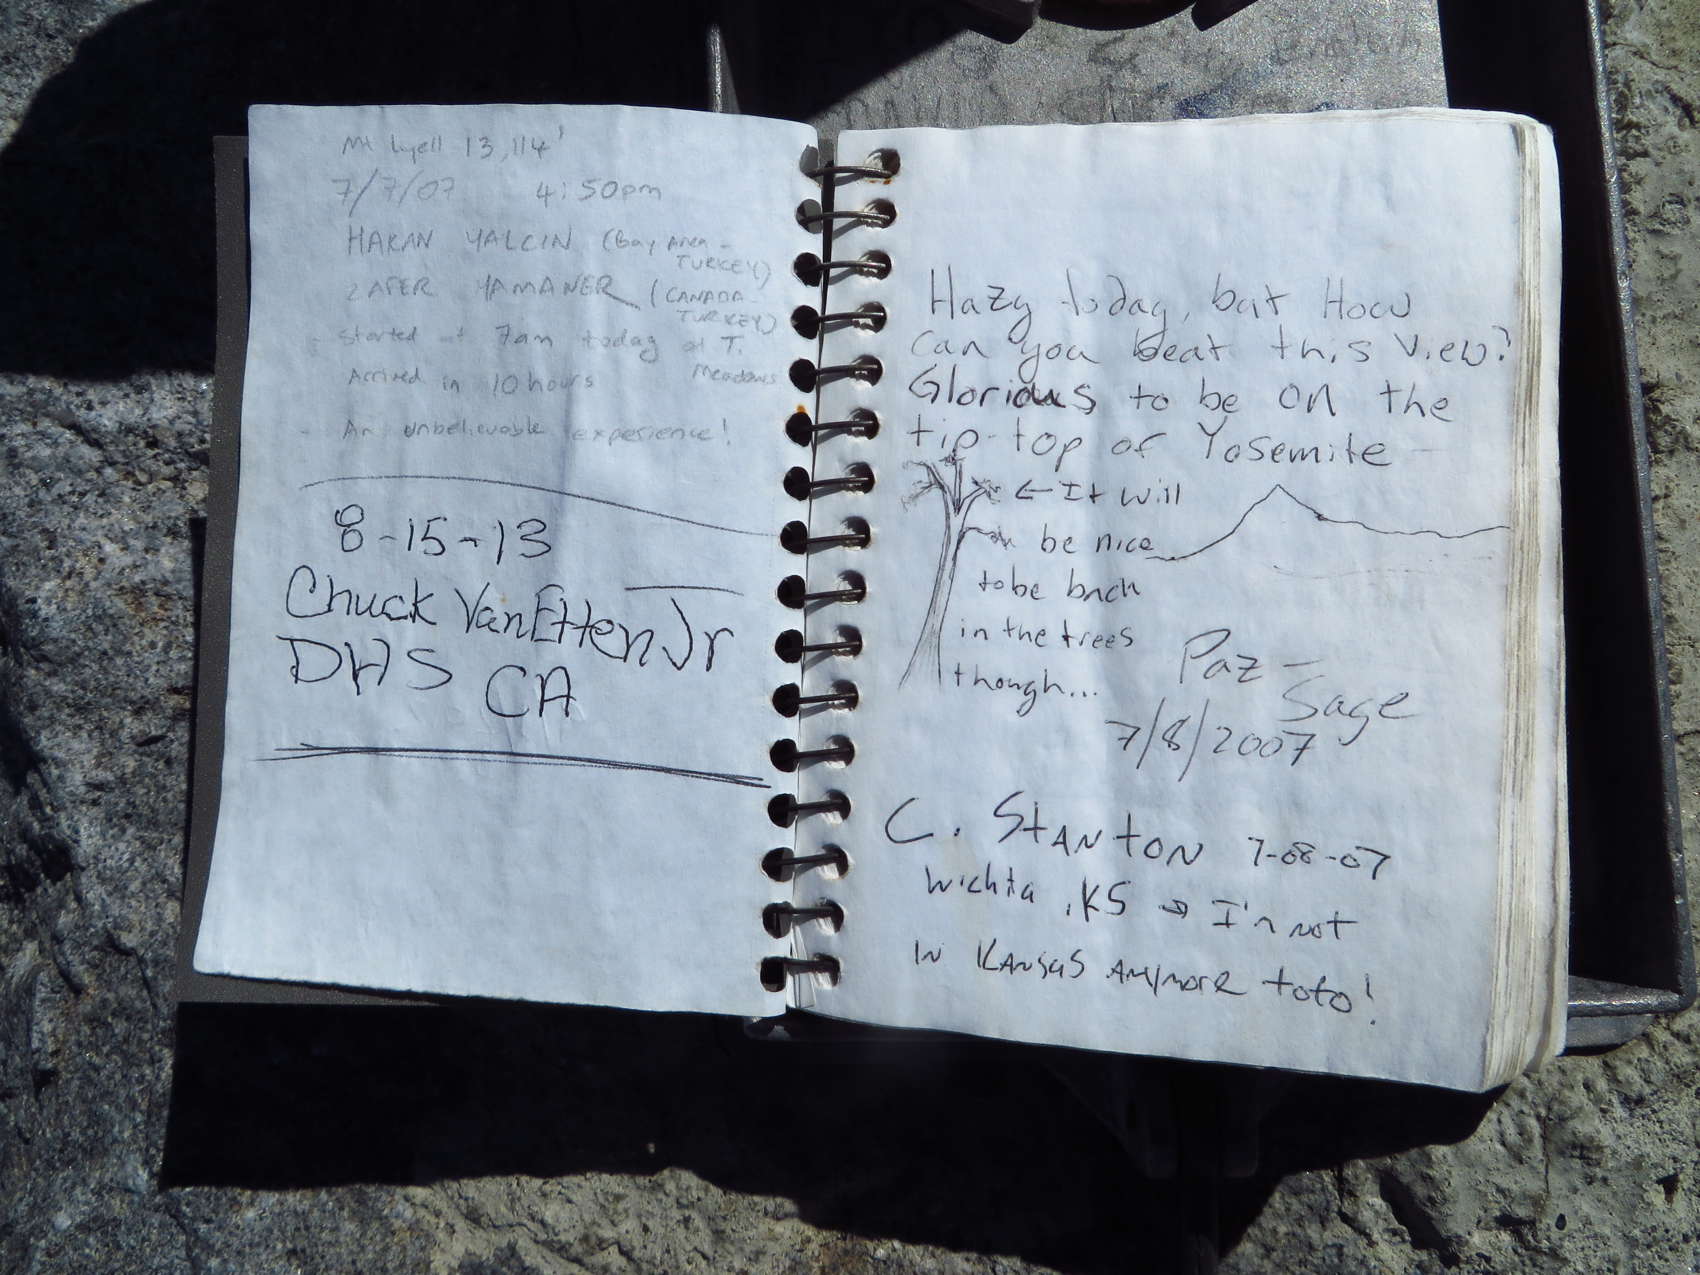 Mt Lyell 13,114'
7/7/07 4:50pm
HAKAN YALCIN (Bay Area -
TURKEY)
ZAFER YAMANER (CANADA -
TURKEY)
- Started at 7am today at T.
Meadows
Arrived in 10 hours
- An unbelievable experience!
8-15-13
Chuck VanEtten Jr
DHS CA
Hazy today, but How
can you beat this view?
Glorious to be on the
tip-top of Yosemite
← It will
be nice
to be back
in the trees
though...
Paz -
Sage
7/8/2007
C. STANTON 7-08-07
Wichta, KS → I'm not
IN KANSAS ANYMORE toto!